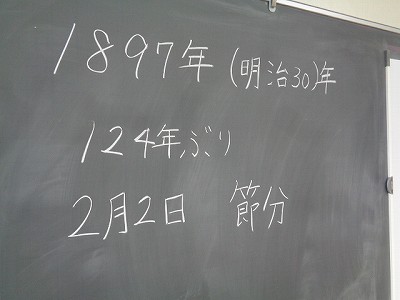 1897年(明治30)年
124年ぶり
2月2日 節分